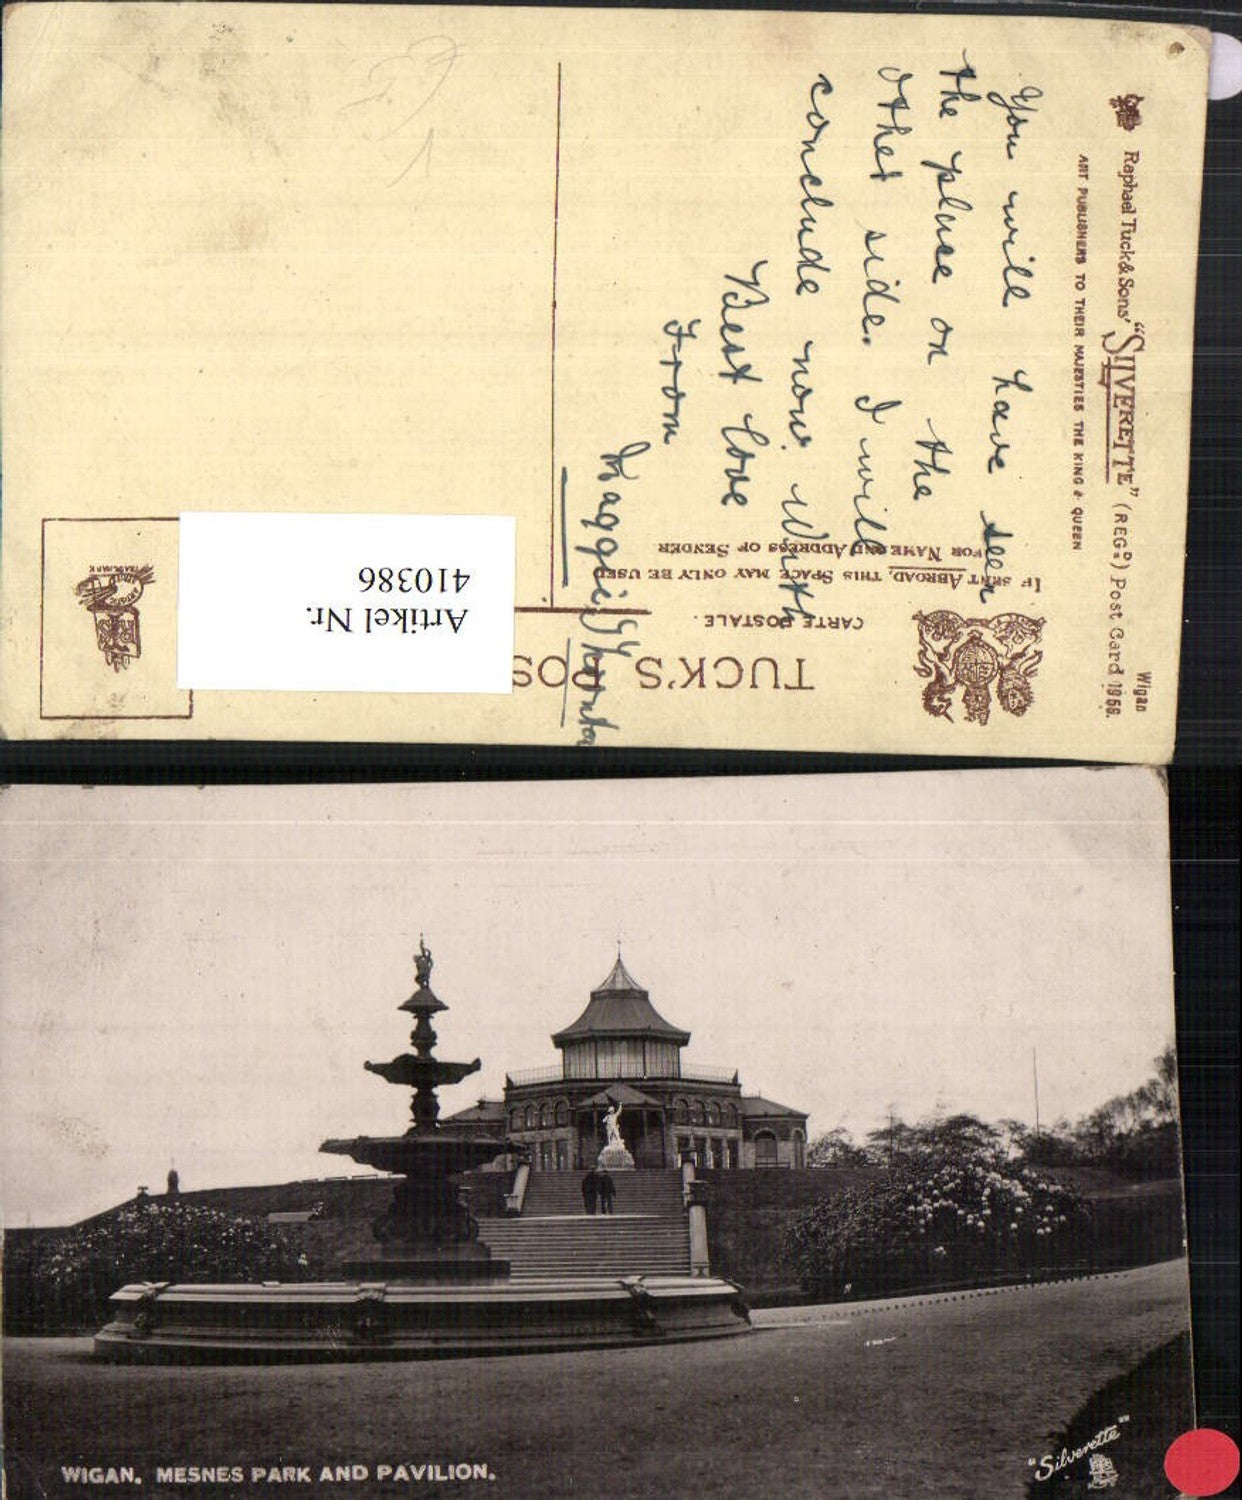 Raphael Tuck & Sons' "SILVERETTE" (REGD.) Post Card 1956.
Wigan
ART PUBLISHERS TO THEIR MAJESTIES THE KING & QUEEN
TUCK'S POS
CARTE POSTALE.
IF SENT ABROAD, THIS SPACE MAY ONLY BE USED
FOR NAME AND ADDRESS OF SENDER
You will have seen
the place on the
other side. I will
conclude now. With
Best love
From
Maggie
Artikel Nr.
410386
TRADE MARK
WIGAN. MESNES PARK AND PAVILION.
"Silverette"